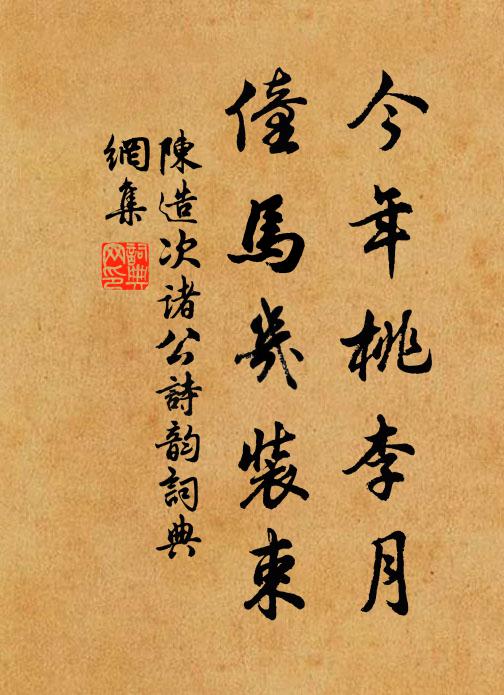 今年桃李月
僮馬幾裝束
陳造次諸公詩韵詞典
網集
詞典
网印